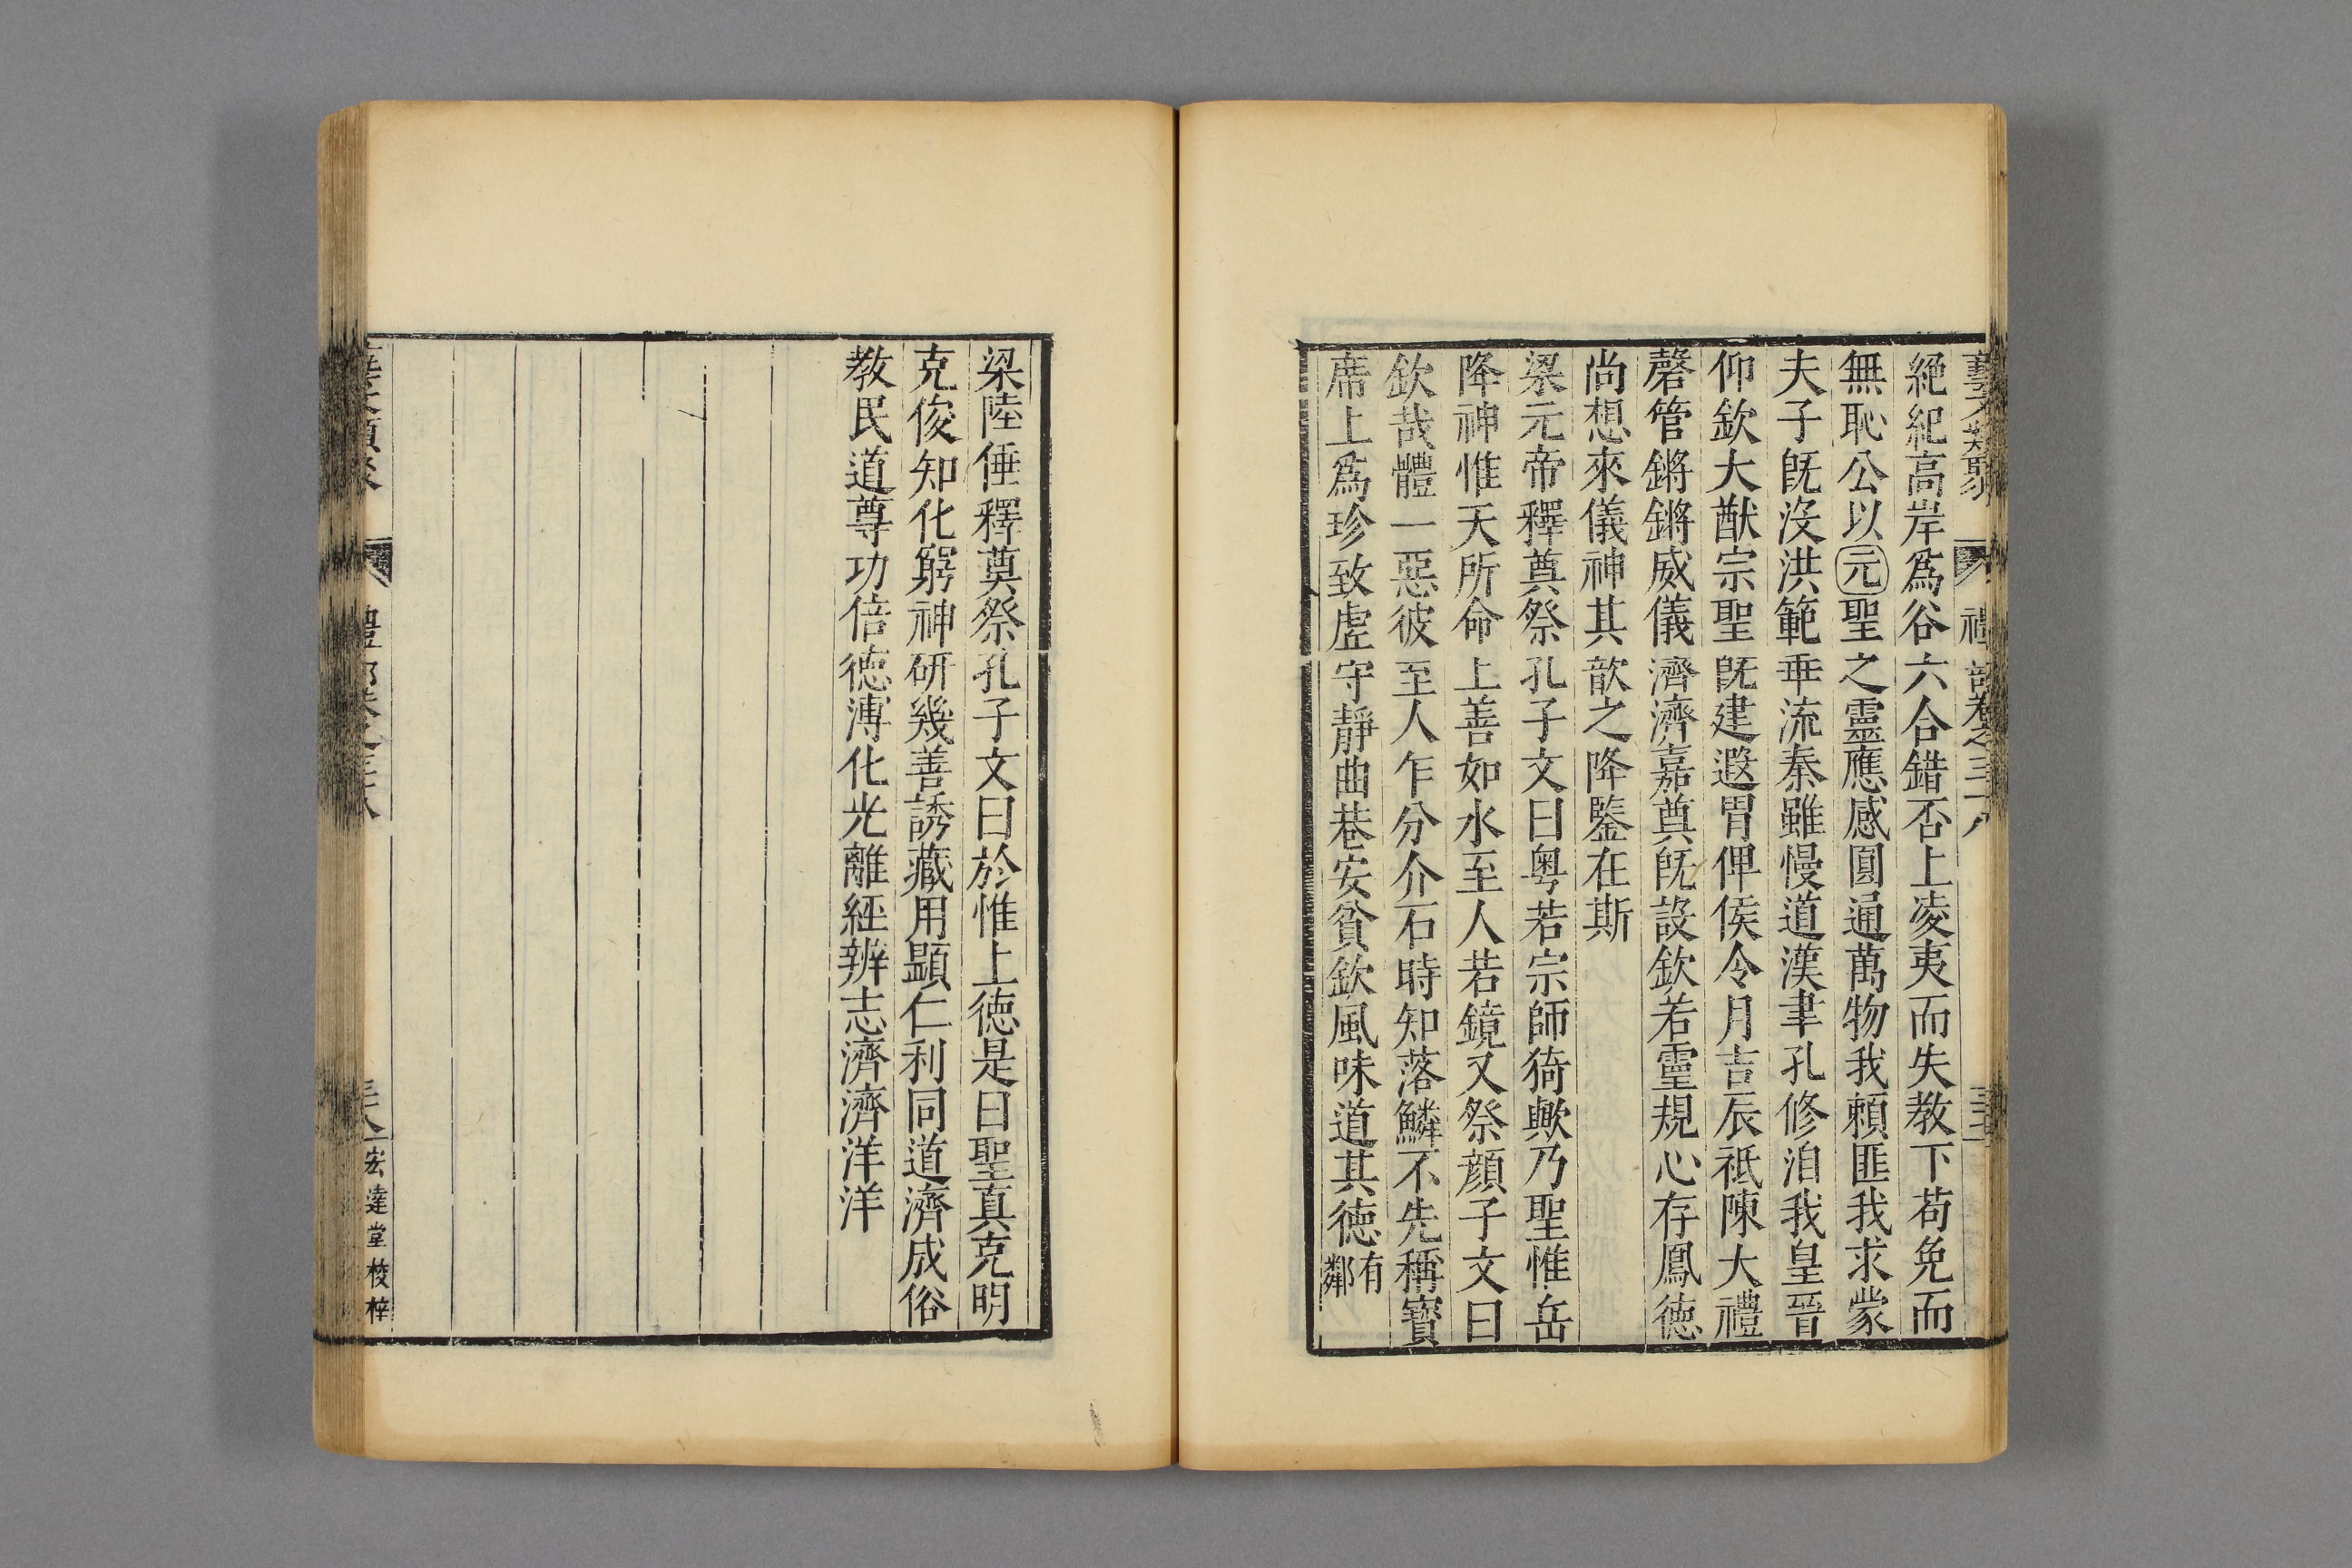 藝文類聚 禮部卷之三十八
絶紀高岸爲谷六合錯否上凌夷而失教下苟免而
無恥公以元聖之靈應感圓通萬物我頼匪我求蒙
夫子旣沒洪範垂流秦雖慢道漢聿孔修洎我皇晉
仰欽大猷宗聖旣建遐胃俾侯令月吉辰祇陳大禮
磬管鏘鏘威儀濟濟嘉奠旣設欽若靈規心存鳳德
尚想來儀神其歆之降鑒在斯
梁元帝釋奠祭孔子文曰粵若宗師猗歟乃聖惟岳
降神惟天所命上善如水至人若鏡又祭顔子文曰
欽哉體一惡彼至人乍分介石時知落鱗不先稱寳
席上爲珍致虛守靜曲巷安貧欽風味道其德有鄰
梁陸倕釋奠祭孔子文曰於惟上德是曰聖真克明
克俊知化窮神研幾善誘藏用顯仁利同道濟成俗
教民道尊功倍德溥化光離經辨志濟濟洋洋
宏達堂校梓